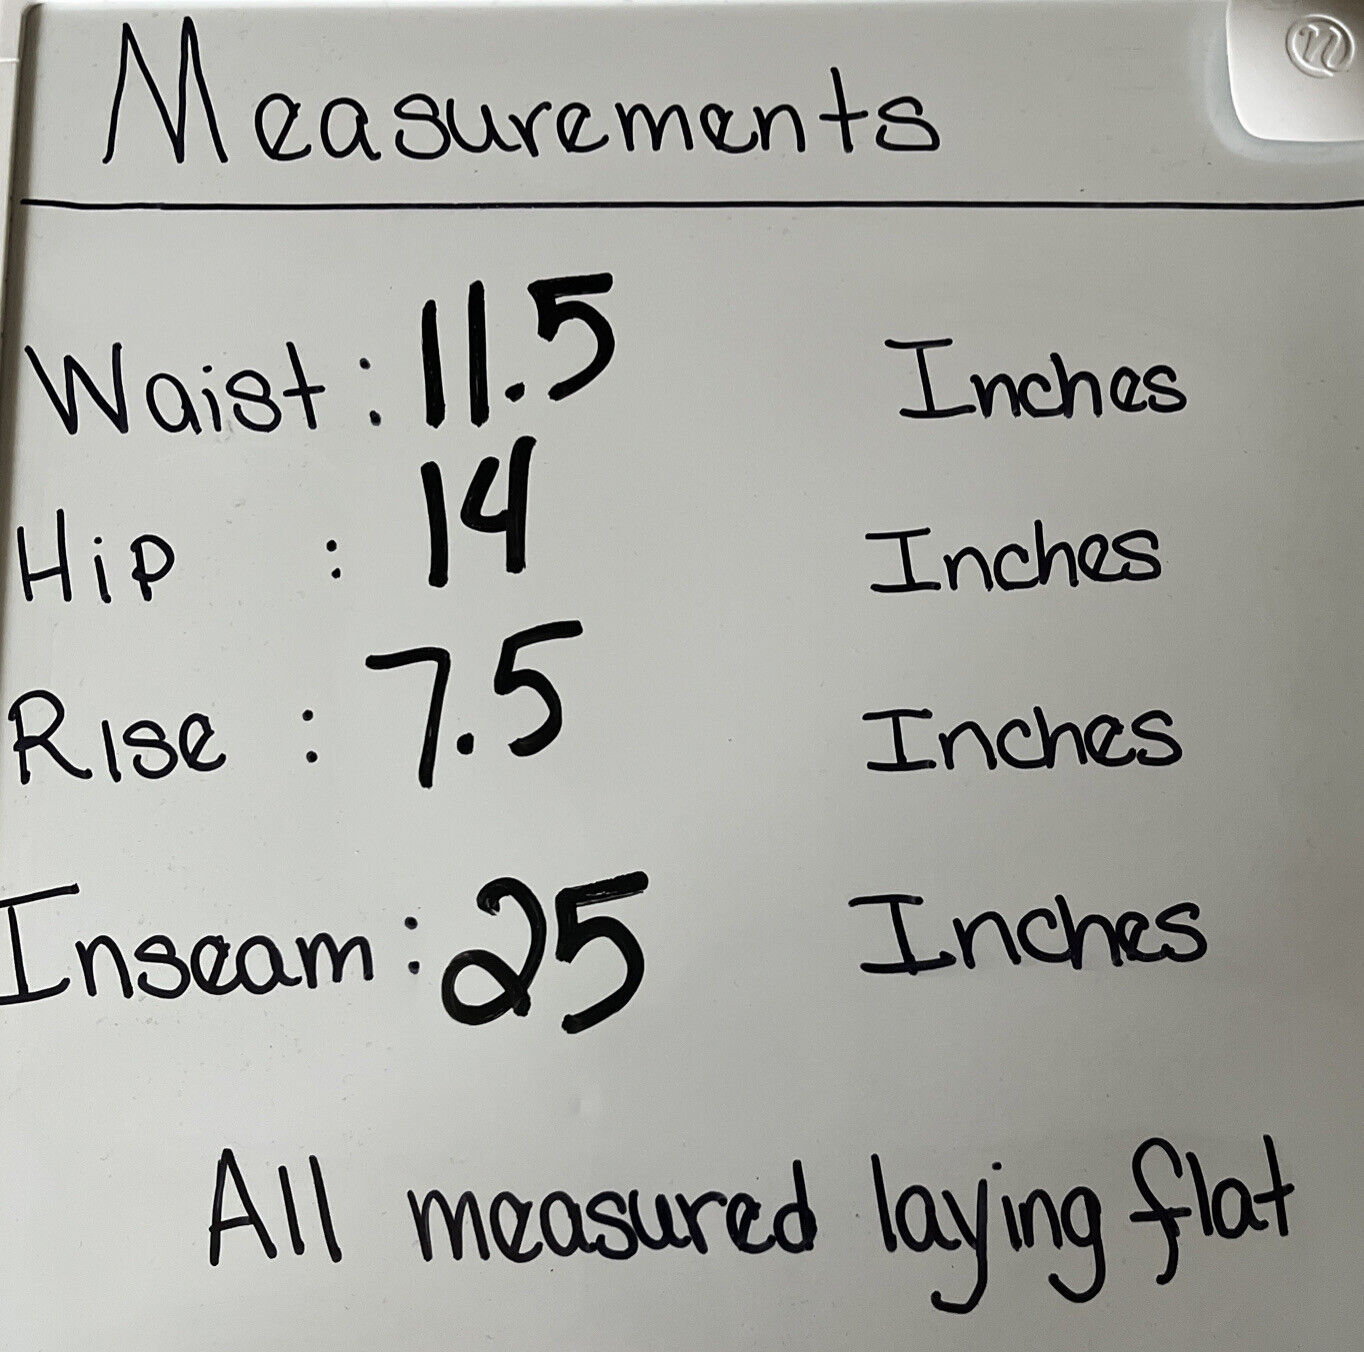 Measurements
Waist: 11.5 Inches
Hip : 14 Inches
Rise : 7.5 Inches
Inseam: 25 Inches
All measured laying flat